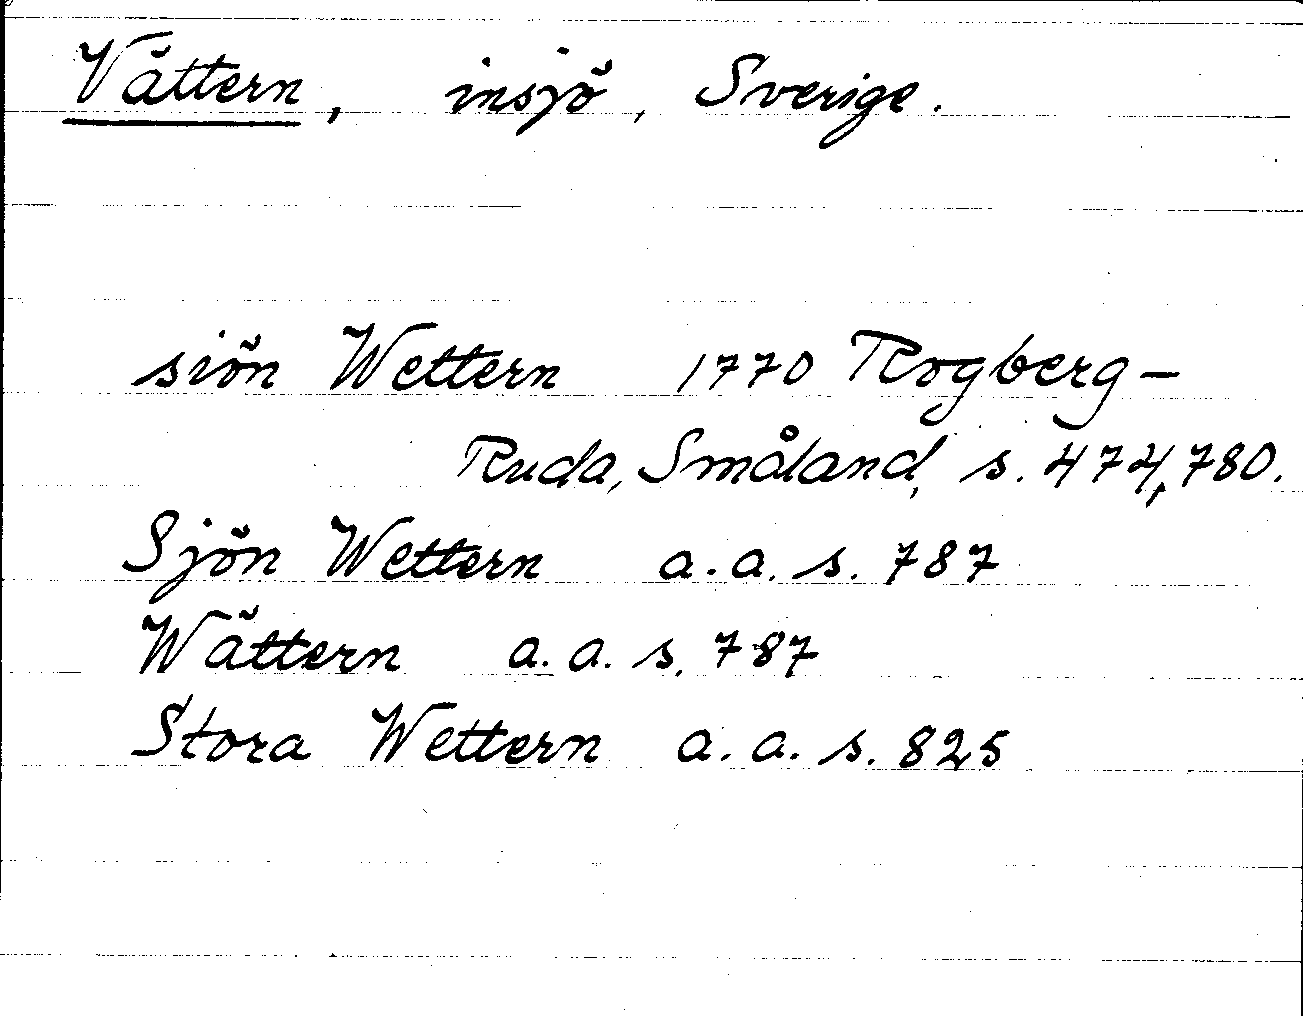 Vättern, insjö, Sverige.
siön Wettern 1770 Rogberg-
Ruda, Småland, s. 474, 780.
Sjön Wettern a.a. s. 787
Wättern a.a. s. 787
Stora Wettern a.a. s. 825